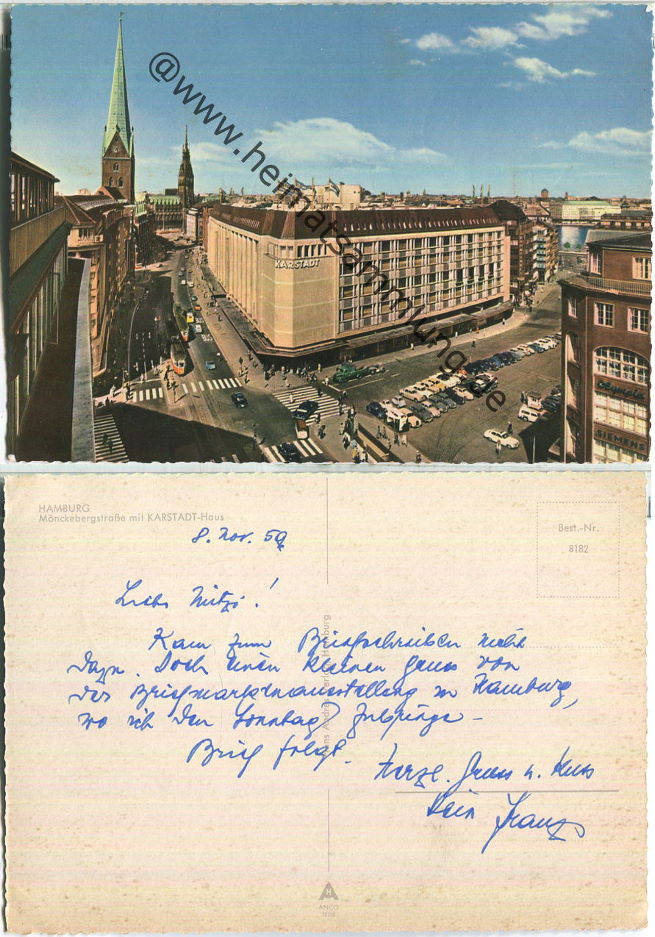 @www.heimatsammlung.de
KARSTADT
Olympia
SIEMENS
HAMBURG
Mönckebergstraße mit KARSTADT-Haus
Best.-Nr.
8182
8. Nov. 59
Liebe Mitzi!
Kam zum Briefschreiben nicht
dazu. Doch einen kleinen Gruss von
der Briefmarkenausstellung in Hamburg,
wo ich den Sonntag zubringe –
Brief folgt.
Herzl. Gruss u. Kuss
Dein Franz
Hamburg
ANCO